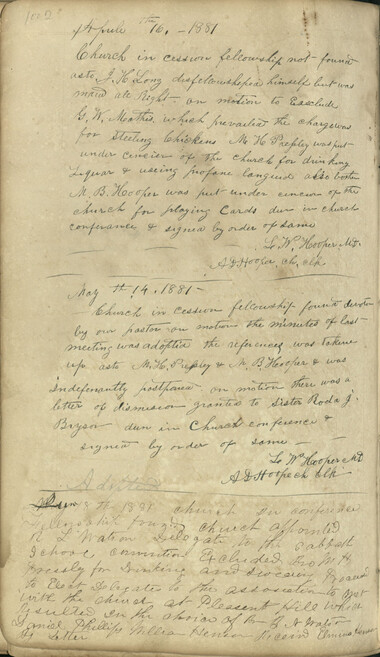 Aprile th 16, - 1881
Church in cession fellowship not found
as to J. H. Long disfellowshiped himself but was
maid all Right - on motion to Exclude
G. W. Mathis which prevailed the charge was
for Steeling Chickens M. H. Pressley was put
under censier of the church for drinking
liquor & useing profane languid also brother
M. B. Hooper was put under censier of the
church for playing Cards dun in church
conferance & signed by order of same
Lo W. Hooper Md.
A D Hooper ch. clk
May th 14. 1881 -
Church in cession fellowship found
by our pastor on motion the minutes of last
meeting was adopted the references was taken
up as to M. H. Pressley & M. B. Hooper & was
Indefenantly postponed on motion there was a
letter of dismision granted to Sister Roda J.
Bryson dun in Church conference &
signed by order of same -
Lo W. Hooper Md
A D Hooper ch clk
8th 1881 church in conference
fellowship found church appointed
R L Watson Delegate to the Sabbath
School convention Excluded Bro M H
Pressly for Drinking and
to Elect Delegates to the association to met
with the church at Pleasent Hill which
resulted in the choice of R L Watson
Daniel Phillips William Henson Emma Henson
By Letter